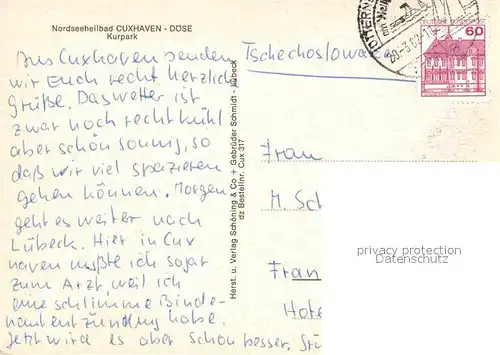 Nordseeheilbad CUXHAVEN - DÖSE
Kurpark
Aus Cuxhaven senden
wir Euch recht herzliche
Grüße. Das Wetter ist
zwar noch recht kühl
aber schön sonnig, so
daß wir viel spazieren
gehen können. Morgen
geht es weiter nach
Lübeck. Hier in Cux
haven mußte ich sogar
zum Arzt, weil ich
eine schlimme Binde-
hautentzündung habe.
Jetzt wird es aber schon besser.
Herst. u. Verlag Schöning & Co + Gebrüder Schmidt - Lübeck
dz Bestellnr. Cux 317
Tschechoslowa
DEUTSCHE BUNDESPOST
60
Frau
M. Sch
Fran
Hote
privacy protection
Datenschutz